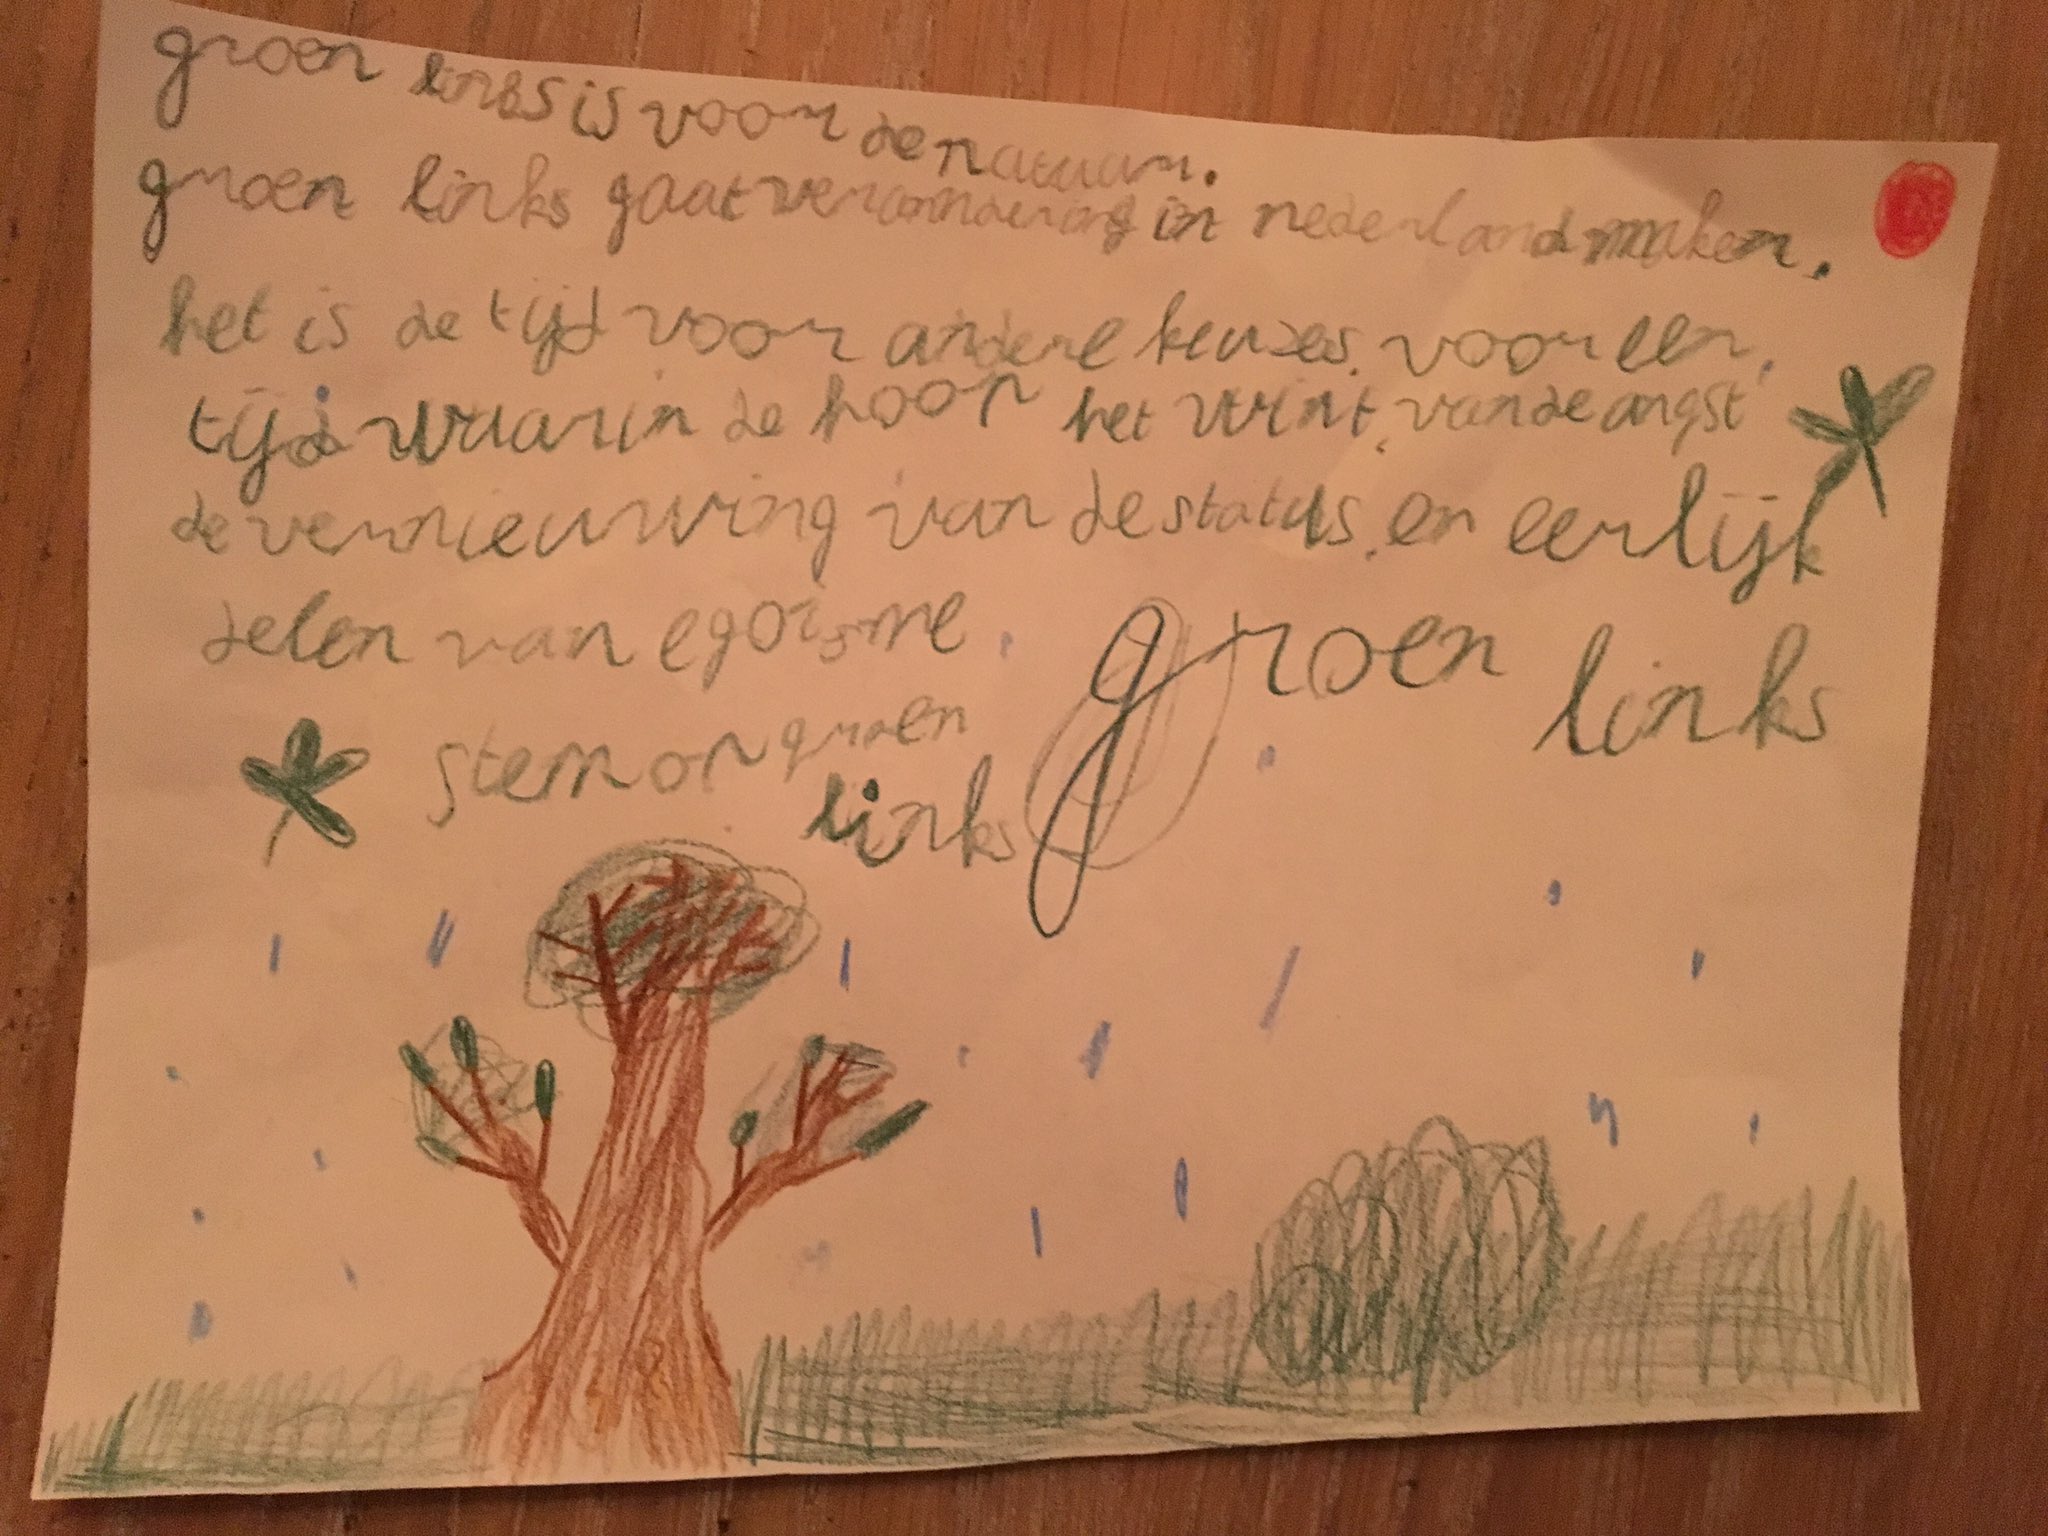 groen links is voor de natuur.
groen links gaat veranndering in nederland maken.
het is de tijd voor andere keuzes, voor een
tijd waarin de hoop het wint, van de angst
de vernieuwing van de status, en eerlijk
delen van egoïsme.
groen links
stem op groen
links